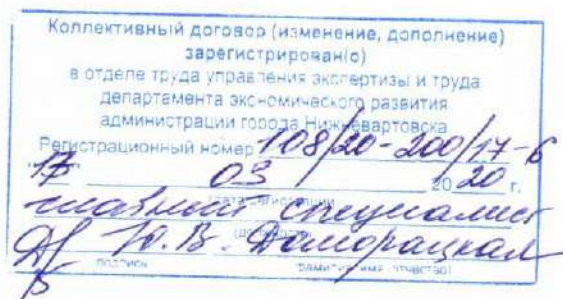 Коллективный договор (изменение, дополнение)
зарегистрирован(о)
в отделе труда управления экспертизы и труда
департамента экономического развития
администрации города Нижневартовска
Регистрационный номер 108/20-200/17-6
"17" 03 2020 г.
(дата регистрации)
главный специалист
(должность)
Ю.В. Доморацкая
подпись (фамилия, имя, отчество)